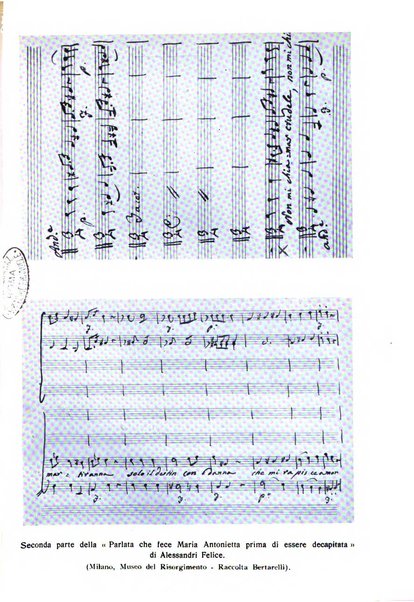 And.e
p. f. p.
Non mi chiamar crudele, non mi chi
And.e
f. p.
f. f. p. f.
mar tiranna solo il destin condanna che mi rapisce amor
f. f. f. p. f.
Seconda parte della « Parlata che fece Maria Antonietta prima di essere decapitata »
di Alessandri Felice.
(Milano, Museo del Risorgimento - Raccolta Bertarelli).